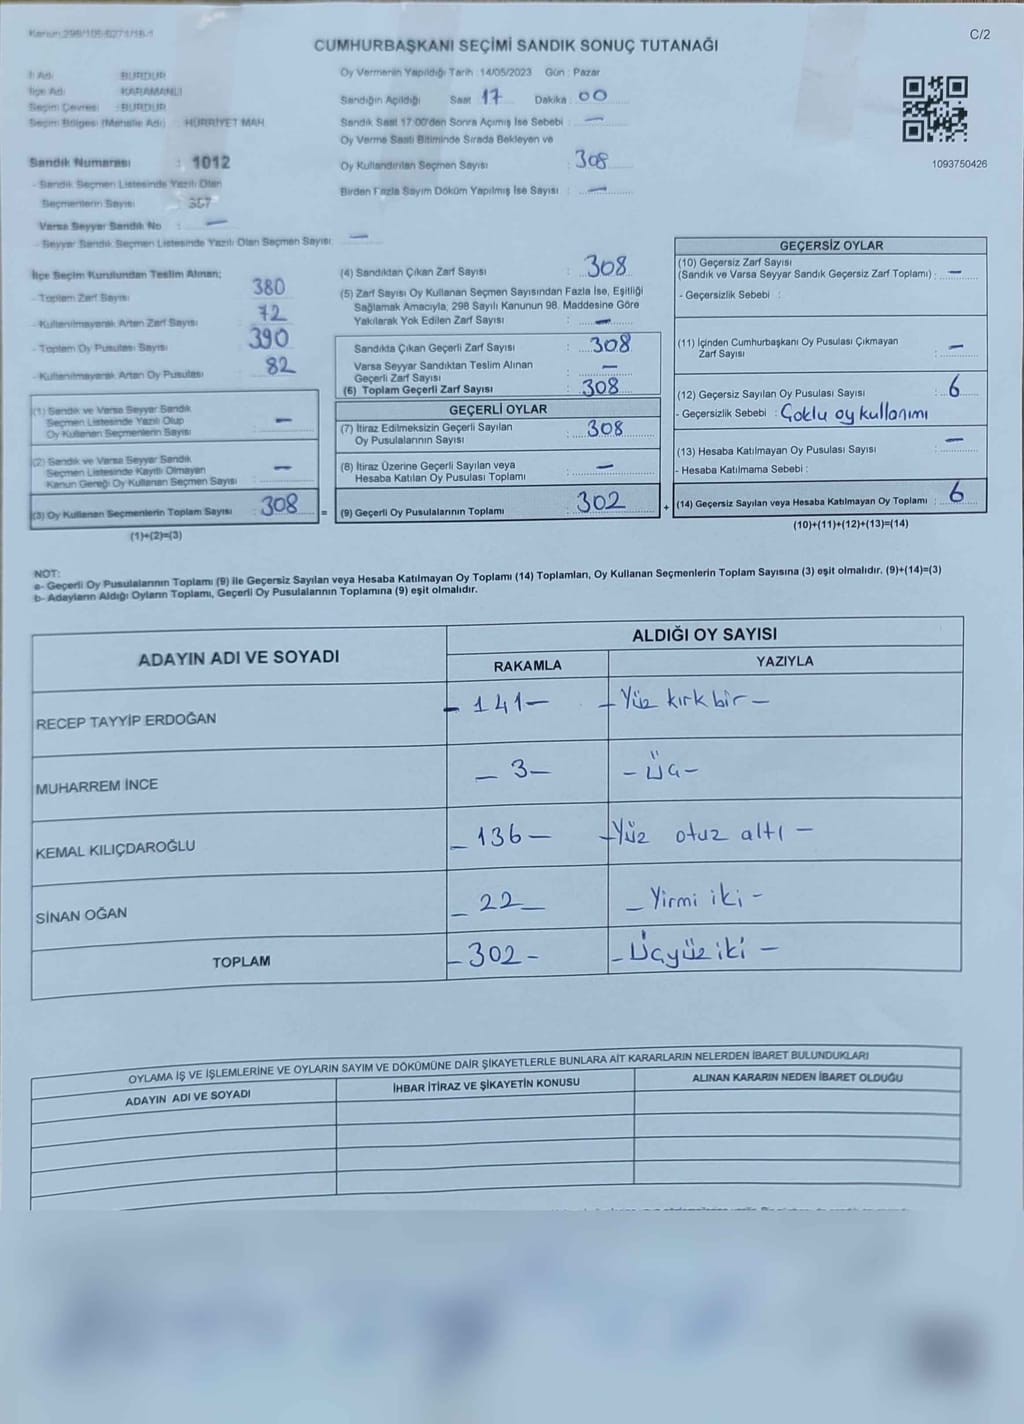 Kanun 298/105-6271/18-1
C/2
CUMHURBAŞKANI SEÇİMİ SANDIK SONUÇ TUTANAĞI
İl Adı : BURDUR
İlçe Adı : KARAMANLI
Seçim Çevresi : BURDUR
Seçim Bölgesi (Mahalle Adı) : HÜRRİYET MAH.
Sandık Numarası : 1012
- Sandık Seçmen Listesinde Yazılı Olan
Seçmenlerin Sayısı : 357
Varsa Seyyar Sandık No : —
- Seyyar Sandık Seçmen Listesinde Yazılı Olan Seçmen Sayısı: —
Oy Vermenin Yapıldığı Tarih : 14/05/2023 Gün : Pazar
Sandığın Açıldığı Saat : 17 Dakika : 00
Sandık Saat 17:00'den Sonra Açımış İse Sebebi : —
Oy Verme Saati Bitiminde Sırada Bekleyen ve
Oy Kullandırılan Seçmen Sayısı : 308
Birden Fazla Sayım Döküm Yapılmış İse Sayısı : —
1093750426
İlçe Seçim Kurulundan Teslim Alınan;
- Toplam Zarf Sayısı : 380
- Kullanılmayarak Artan Zarf Sayısı : 72
- Toplam Oy Pusulası Sayısı : 390
- Kullanılmayarak Artan Oy Pusulası : 82
(1) Sandık ve Varsa Seyyar Sandık
Seçmen Listesinde Yazılı Olup
Oy Kullanan Seçmenlerin Sayısı : —
(2) Sandık ve Varsa Seyyar Sandık
Seçmen Listesinde Kayıtlı Olmayan
Kanun Gereği Oy Kullanan Seçmen Sayısı : —
(3) Oy Kullanan Seçmenlerin Toplam Sayısı : 308 =
(1)+(2)=(3)
(4) Sandıktan Çıkan Zarf Sayısı : 308
(5) Zarf Sayısı Oy Kullanan Seçmen Sayısından Fazla İse, Eşitliği
Sağlamak Amacıyla, 298 Sayılı Kanunun 98. Maddesine Göre
Yakılarak Yok Edilen Zarf Sayısı : —
Sandıkta Çıkan Geçerli Zarf Sayısı : 308
Varsa Seyyar Sandıktan Teslim Alınan
Geçerli Zarf Sayısı : —
(6) Toplam Geçerli Zarf Sayısı : 308
GEÇERLİ OYLAR
(7) İtiraz Edilmeksizin Geçerli Sayılan
Oy Pusulalarının Sayısı : 308
(8) İtiraz Üzerine Geçerli Sayılan veya
Hesaba Katılan Oy Pusulası Toplamı : —
(9) Geçerli Oy Pusulalarının Toplamı : 302 +
GEÇERSİZ OYLAR
(10) Geçersiz Zarf Sayısı
(Sandık ve Varsa Seyyar Sandık Geçersiz Zarf Toplamı) : —
- Geçersizlik Sebebi :
(11) İçinden Cumhurbaşkanı Oy Pusulası Çıkmayan
Zarf Sayısı : —
(12) Geçersiz Sayılan Oy Pusulası Sayısı : 6
- Geçersizlik Sebebi : Çoklu oy kullanımı
(13) Hesaba Katılmayan Oy Pusulası Sayısı : —
- Hesaba Katılmama Sebebi :
(14) Geçersiz Sayılan veya Hesaba Katılmayan Oy Toplamı : 6
(10)+(11)+(12)+(13)=(14)
NOT:
a- Geçerli Oy Pusulalarının Toplamı (9) ile Geçersiz Sayılan veya Hesaba Katılmayan Oy Toplamı (14) Toplamları, Oy Kullanan Seçmenlerin Toplam Sayısına (3) eşit olmalıdır. (9)+(14)=(3)
b- Adayların Aldığı Oyların Toplamı, Geçerli Oy Pusulalarının Toplamına (9) eşit olmalıdır.
ADAYIN ADI VE SOYADI
ALDIĞI OY SAYISI
RAKAMLA YAZIYLA
RECEP TAYYİP ERDOĞAN - 141 - - Yüz kırk bir -
MUHARREM İNCE - 3 - - Üç -
KEMAL KILIÇDAROĞLU - 136 - - Yüz otuz altı -
SİNAN OĞAN - 22 - - Yirmi iki -
TOPLAM - 302 - - Üçyüz iki -
OYLAMA İŞ VE İŞLEMLERİNE VE OYLARIN SAYIM VE DÖKÜMÜNE DAİR ŞİKAYETLERLE BUNLARA AİT KARARLARIN NELERDEN İBARET BULUNDUKLARI
ADAYIN ADI VE SOYADI İHBAR İTİRAZ VE ŞİKAYETİN KONUSU ALINAN KARARIN NEDEN İBARET OLDUĞU